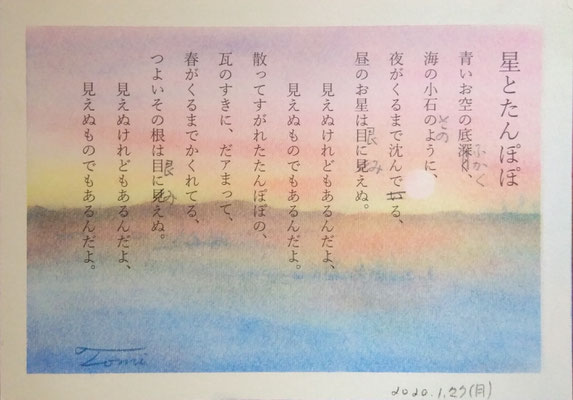 星とたんぽぽ
青いお空の底深く、
ふかく
海の小石のように、
その
夜がくるまで沈んでる、
昼のお星は目に見えぬ。
眼 み
見えぬけれどもあるんだよ、
見えぬものでもあるんだよ。
散ってすがれたたんぽぽの、
瓦のすきに、だァまって、
春がくるまでかくれてる、
つよいその根は目に見えぬ。
眼 み
見えぬけれどもあるんだよ、
見えぬものでもあるんだよ。
Tomi
2020.1.27(月)